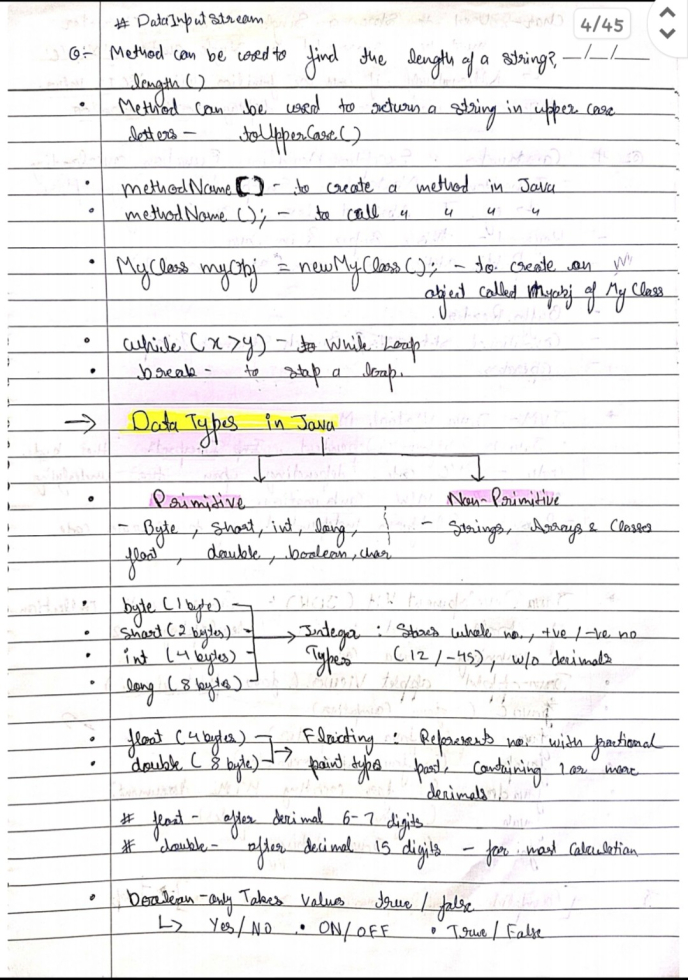 # DataInputStream
4/45
Q:- Method can be used to find the length of a string?, __/__/__
length()
• Method can be used to return a string in upper case
letters - toUpperCase()
• methodName() - to create a method in Java
• methodName(); - to call " " " "
• MyClass myObj = newMyClass(); - to create an
object called Myobj of My Class
• while (x>y) - to While Loop
• break - to stop a loop.
→ Data Types in Java
• Primitive Non-Primitive
- Byte, short, int, long, - Strings, Arrays & Classes
float, double, boolean, char
• byte (1 byte)
• short (2 bytes) → Integer : Stores whole no., +ve/-ve no
• int (4 bytes) Types (12/-45), w/o decimals
• long (8 bytes)
• float (4 bytes) → Floating : Represents no. with fractional
• double (8 byte) point types part, containing 1 or more
decimals.
# float - after decimal 6-7 digits
# double - after decimal 15 digits - for most calculation
• boolean - only Takes values true / false
↳ Yes/NO • ON/OFF • True/False